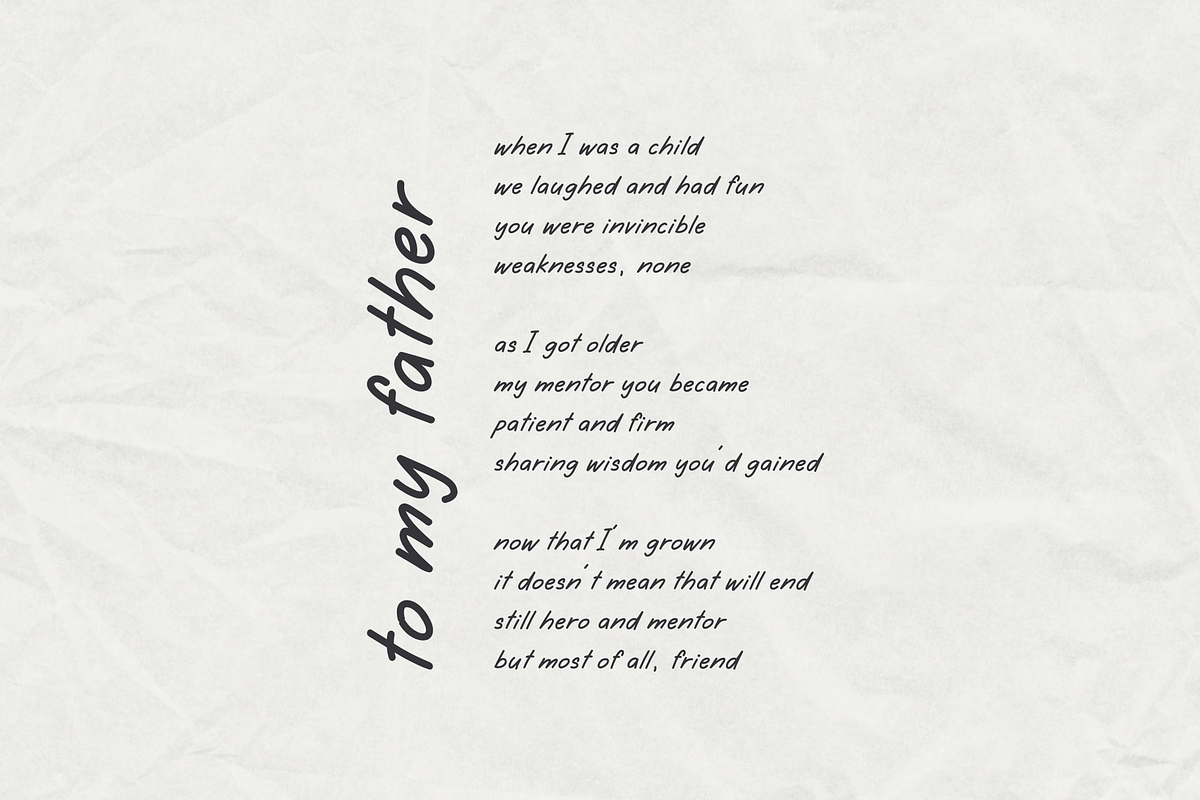 to my father
when I was a child
we laughed and had fun
you were invincible
weaknesses, none
as I got older
my mentor you became
patient and firm
sharing wisdom you'd gained
now that I'm grown
it doesn't mean that will end
still hero and mentor
but most of all, friend